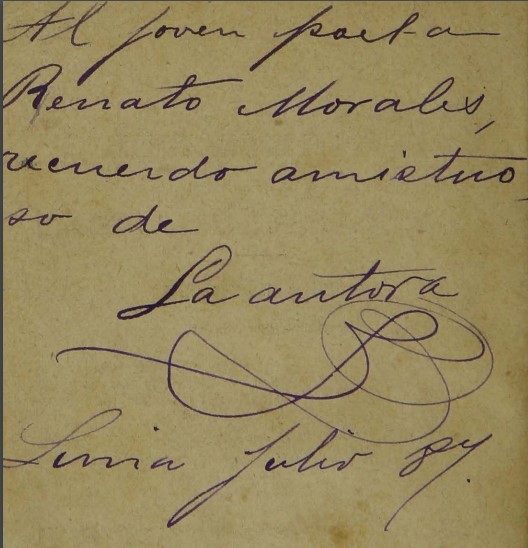 Al joven poeta
Renato Morales,
recuerdo amistuo-
so de
La autora
Lima Julio 87.